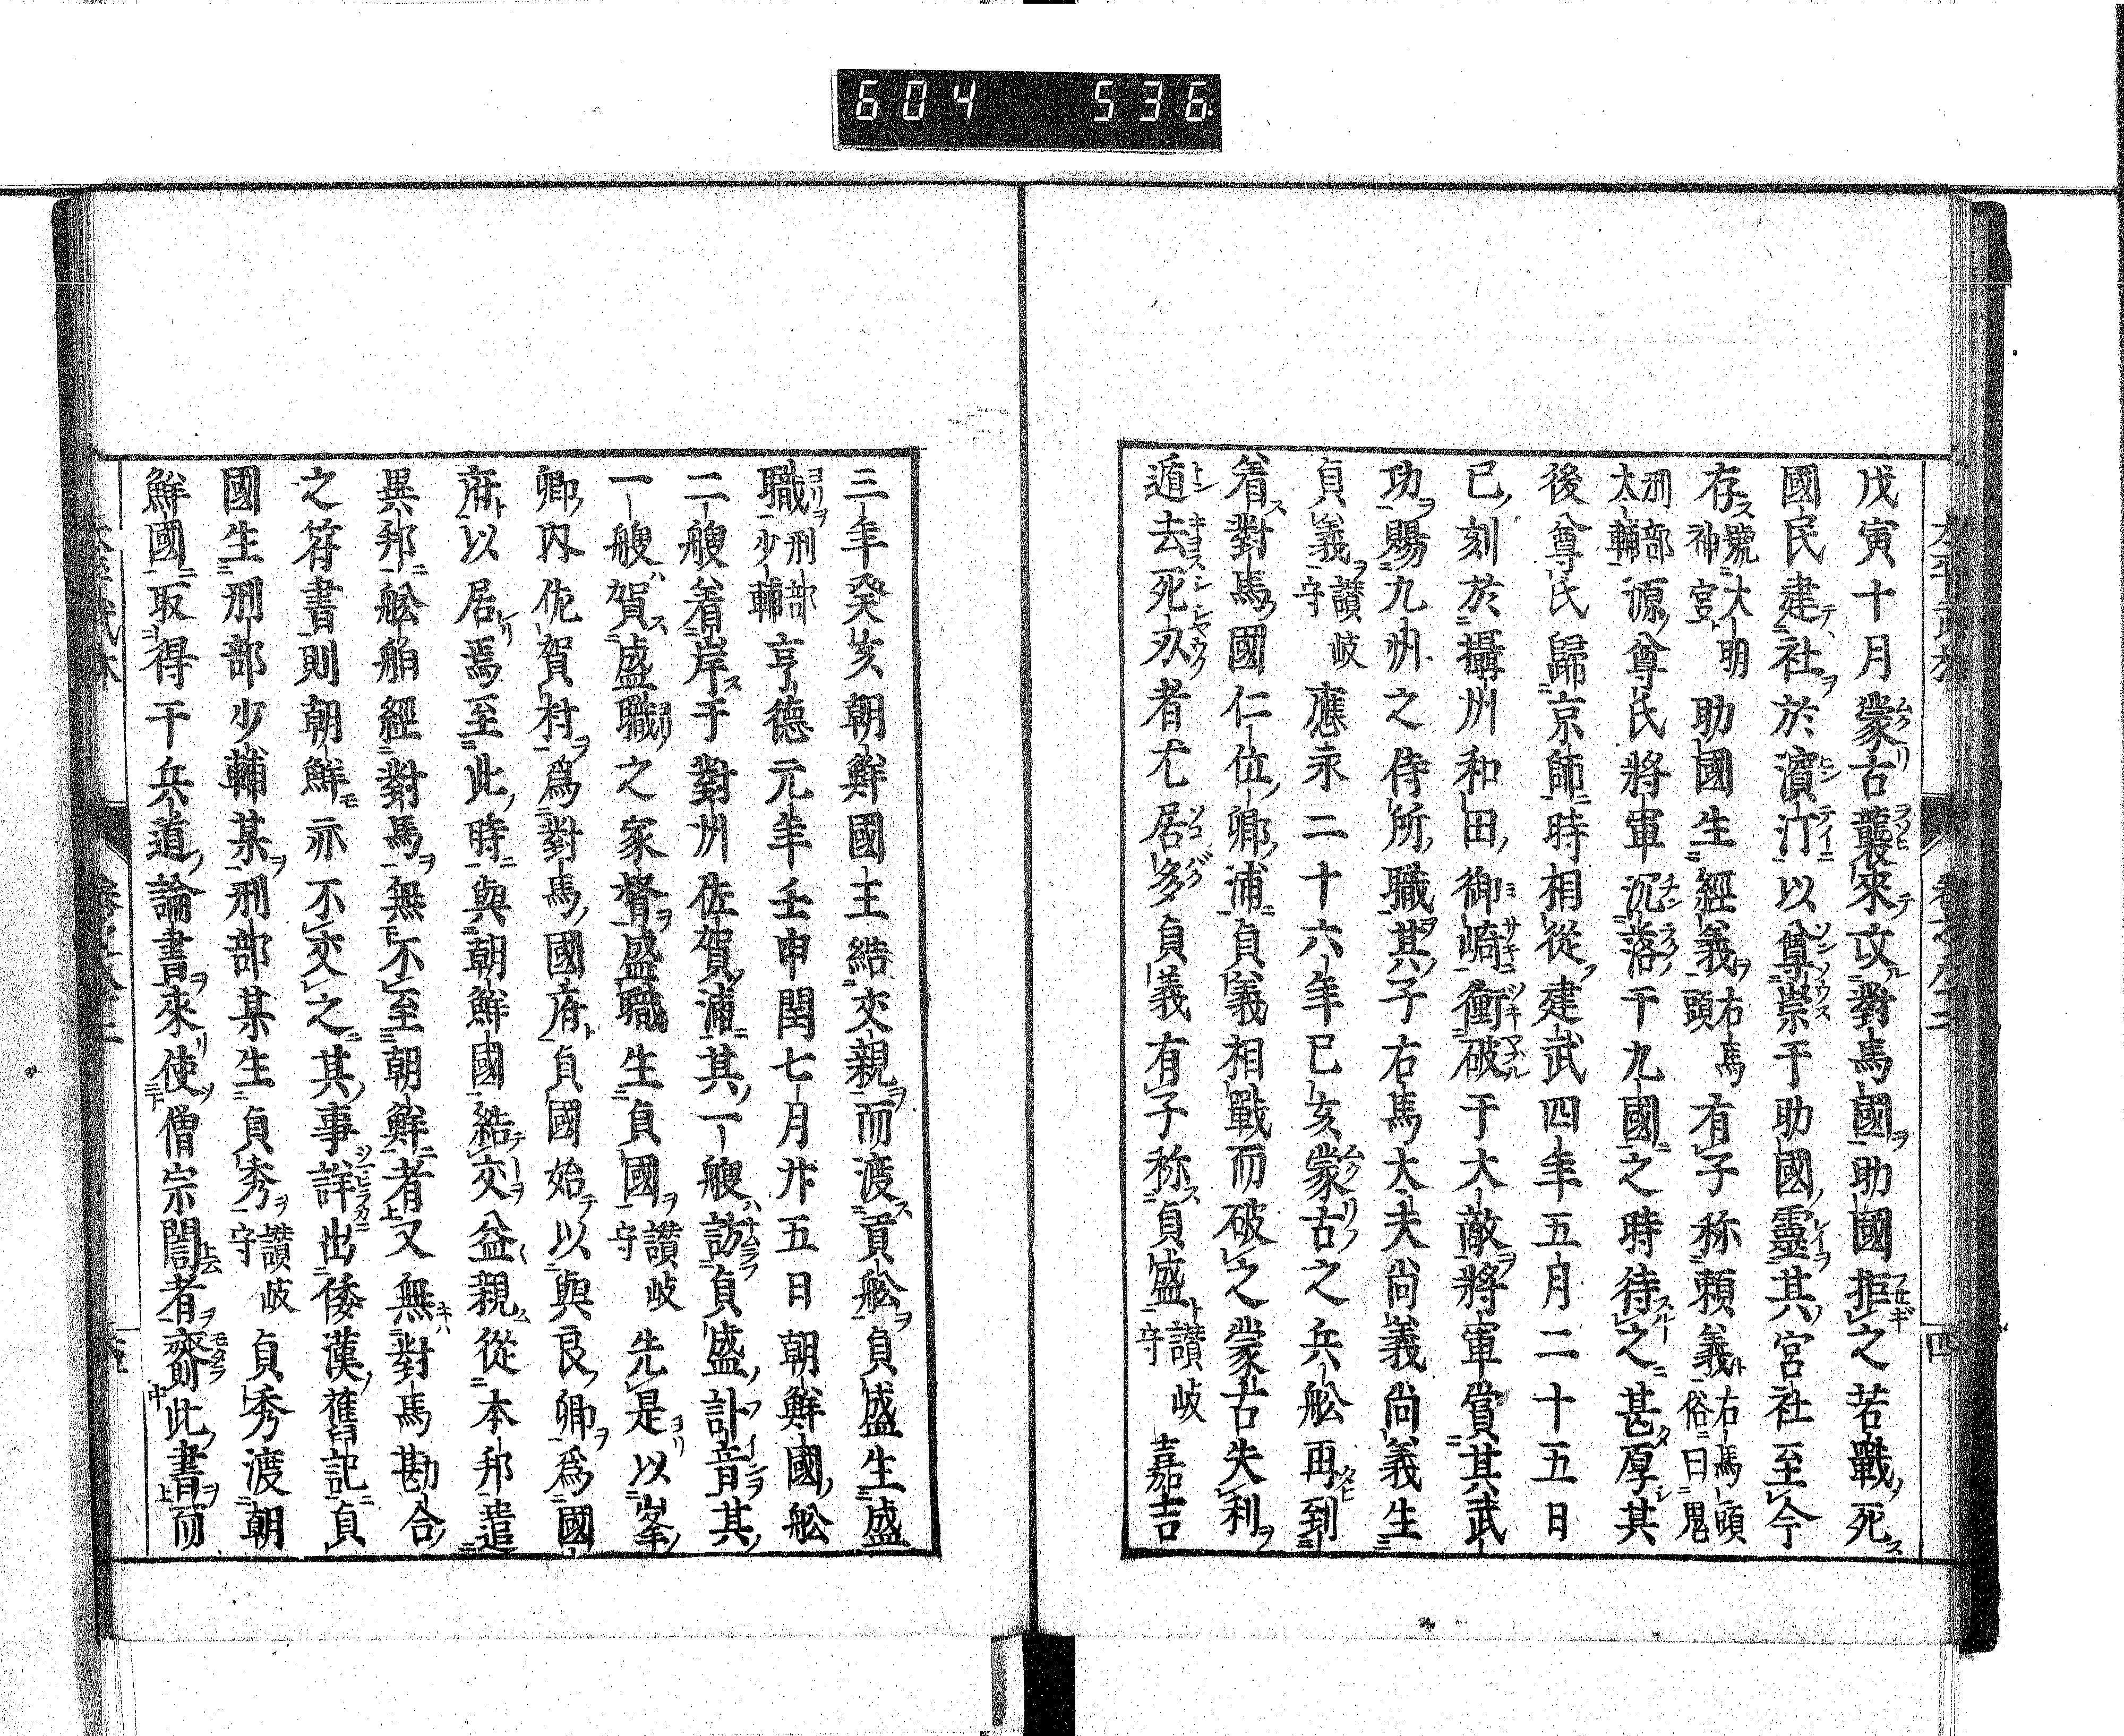 604 536
戊寅十月蒙古襲來攻對馬國助國拒之若戰死
國民建社於濵汀以尊崇于助國靈其宮社至今
存號大明神宮助國生經義右馬頭有子称頼義右馬頭俗曰鬼
刑部太輔源尊氏將軍沉落于九國之時待之甚厚其
後尊氏歸京師時相從建武四年五月二十五日
已刻於攝州和田御崎衝破于大敵將軍賞其武
功賜九州之侍所職其子右馬大夫尚義尚義生
貞義讃岐守應永二十六年已亥蒙古之兵舩再到
着對馬國仁位卿浦貞義相戰而破之蒙古失利
遁去死刄者尤居多貞義有子称貞盛讃岐守嘉吉
三年癸亥朝鮮國王結交親而渡貢舩貞盛生盛
職刑部少輔亨德元年壬申閏七月廿五日朝鮮國舩
二艘着岸于對州佐賀浦其一艘訪貞盛訃音其
一艘賀盛職之家督盛職生貞國讃岐守先是以峯
卿内佐賀村爲對馬國府貞國始以與良卿爲國
府以居焉至此時與朝鮮國結交益親從本邦遣
異邦舩舶經對馬無不至朝鮮者又無對馬勘合
之符書則朝鮮亦不交之其事詳出倭漢舊記貞
國生刑部少輔某刑部某生貞秀讃岐守貞秀渡朝
鮮國取得干兵道論書來使僧宗誾者齎此書而